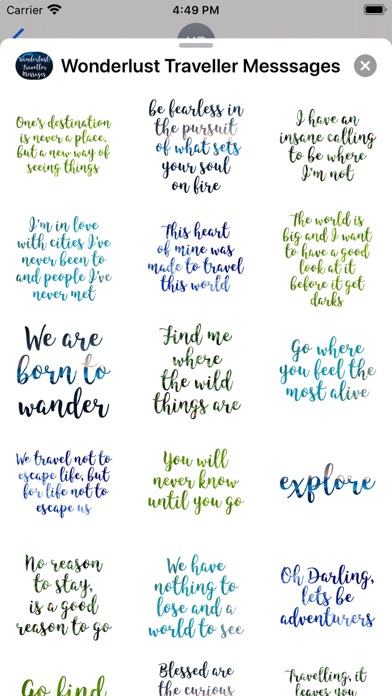 Carrier
4:49 PM
Wonderlust
Traveller
Messages
Wonderlust Traveller Messsages
One's destination
is never a place,
but a new way of
seeing things
be fearless in
the pursuit
of what sets
your soul
on fire
I have an
insane calling
to be where
I'm not
I'm in love
with cities I've
never been to
and people I've
never met
This heart
of mine was
made to travel
this world
The world is
big and I want
to have a good
look at it
before it get
darks
We are
born to
wander
Find me
where
the wild
things are
Go where
you feel the
most alive
We travel not to
escape life, but
for life not to
escape us
You will
never know
until you go
explore
No reason
to stay,
is a good
reason to go
We have
nothing to
lose and a
world to see
Oh Darling,
lets be
adventurers
Go find
Blessed are
the curious
Travelling, it
leaves you